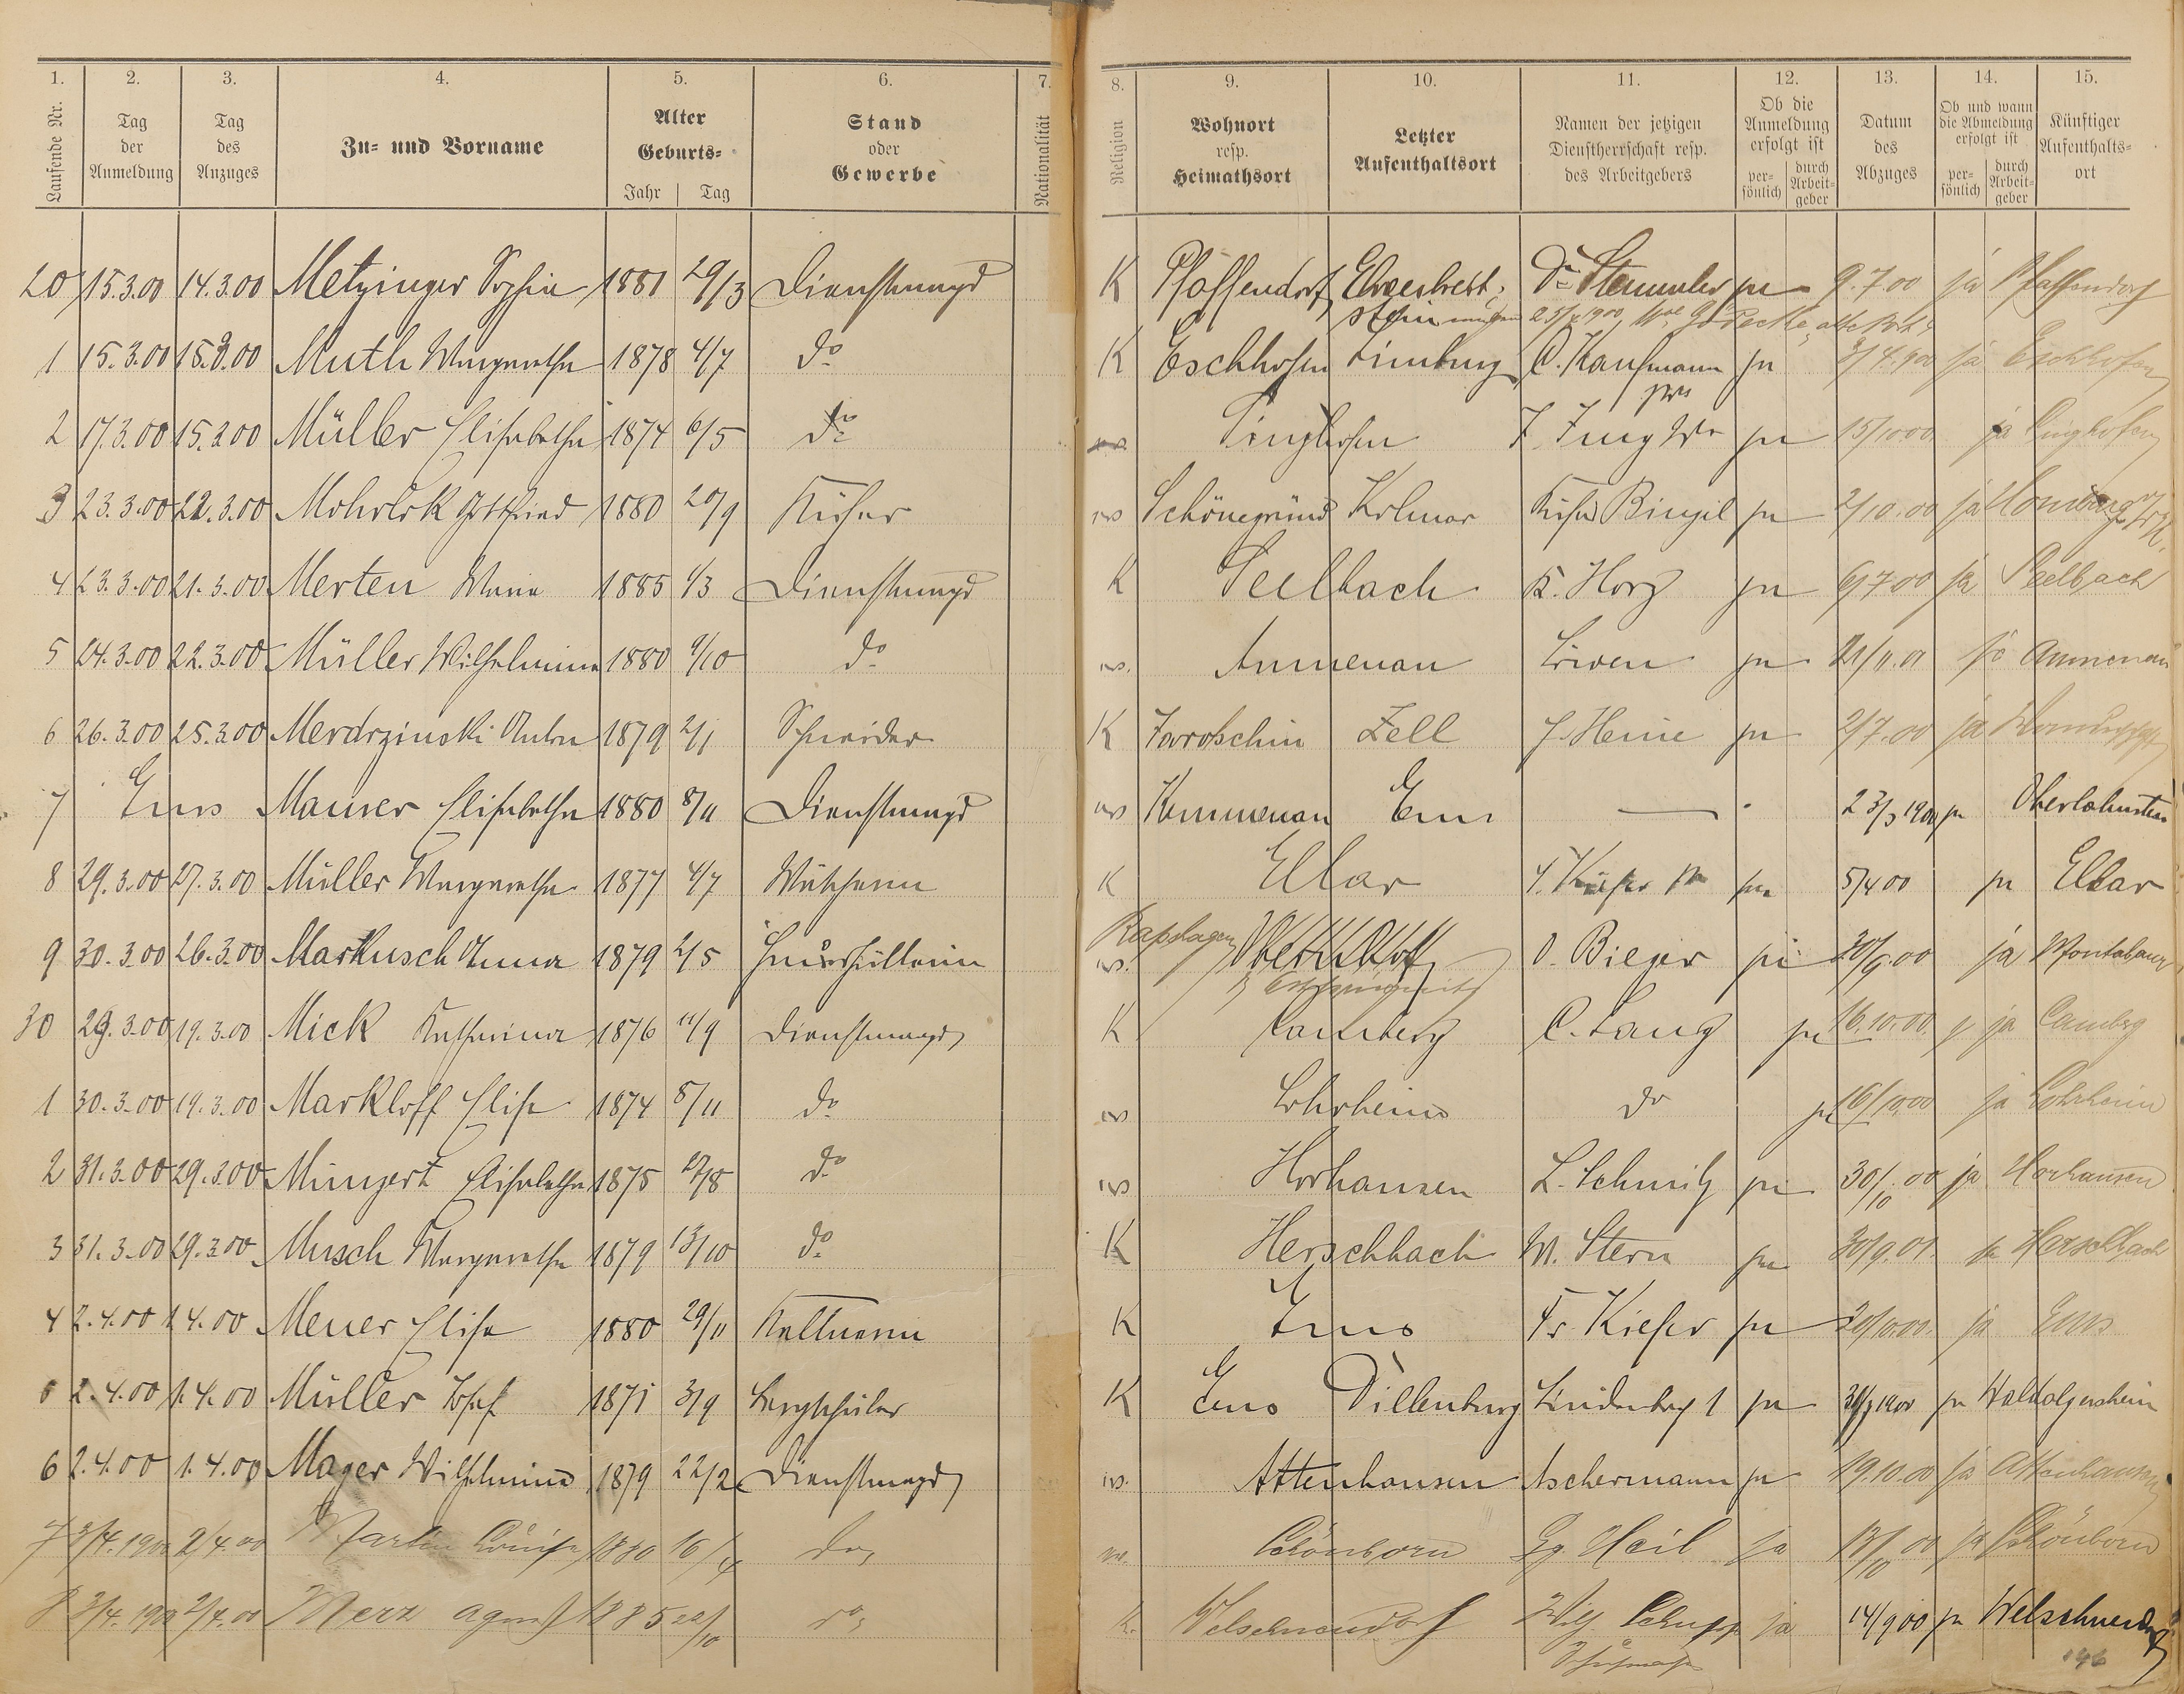 1. 2. 3. 4. 5. 6. 7. 8. 9. 10. 11. 12. 13. 14. 15.
Laufende Nr. | Tag der Anmeldung | Tag des Anzuges | Zu- und Vorname | Alter Geburts- Jahr Tag | Stand oder Gewerbe | Nationalität | Religion | Wohnort resp. Heimathsort | Letzter Aufenthaltsort | Namen der jetzigen Dienstherrschaft resp. des Arbeitgebers | Ob die Anmeldung erfolgt ist persönlich durch Arbeitgeber | Datum des Abzuges | Ob und wann die Abmeldung erfolgt ist persönlich durch Arbeitgeber | Künftiger Aufenthaltsort
20 15.3.00 14.3.00 Metzinger Sophie 1881 29/3 Dienstmagd K Pfaffendorf Ehrenbreitstein Dr Stemmler ja 9.7.00 ja Pfaffendorf
1 15.3.00 15.3.00 Muth Margarethe 1878 4/7 do K Eschhofen Limburg C. Kaufmann ja 3/4.900 ja Eschhofen
2 17.3.00 15.3.00 Müller Elisabetha 1874 6/5 do Singhofen J. Jung Ww ja 15/10 00 ja Singhofen
3 23.3.00 22.3.00 Gottfried 1880 20/9 Küfer ev Schönegründ Kolmar Küfer Bingel ja 2/10.00 ja Homburg
4 23.3.00 21.3.00 Merten Maria 1885 1/3 Dienstmagd K Seelbach K. Horz ja 6/7 00 ja Seelbach
5 24.3.00 22.3.00 Müller Wilhelmine 1880 9/10 do ev. Aumenau Löwen ja 21/11.01 ja Aumenau
6 26.3.00 25.3.00 Merdrzinski Anton 1879 2/1 Schneider K Jarotschin Zell J. Heine ja 2/7.00 ja
7 Ems Maurer Elisabetha 1880 8/11 Dienstmagd ev Kemmenau Ems — 23/3 1900 ja Oberlahnstein
8 29.3.00 27.3.00 Müller Margarethe 1877 4/7 Wäscherin K Ellar ja 5/4 00 ja Ellar
9 30.3.00 26.3.00 Markusch Anna 1879 2/5 Haushälterin ev. O. Bieger ja 30/9.00 ja Montabaur
30 29.3.00 19.3.00 Mick Katharina 1876 11/9 Dienstmagd K Camberg C. Lang ja 16.10.00 ja Camberg
1 30.3.00 19.3.00 Markloff Elise 1874 8/11 do ev Lohrheim do ja 16/10 00 ja Lohrheim
2 31.3.00 29.3.00 Mungert Elisabetha 1875 do ev Horhausen L. Schmitz ja 30/10.00 ja Horhausen
3 31.3.00 29.3.00 Musch Margarethe 1879 13/10 do K Herschbach W. Stern ja 30/9.01 ja Herschbach
4 2.4.00 1.4.00 Meuer Elise 1880 29/11 Kellnerin K Ems Fr. Kiefer ja 20/10.00 ja Ems
2.4.00 1.4.00 Müller Josef 1871 3/9 Bergschüler K Ems Dillenburg Lindenbach 1 ja ja Waldalgesheim
6 2.4.00 1.4.00 Mager Wilhelmine 1879 22/2 Dienstmagd ev. Attenhausen Aschermann ja 19.10.00 ja Attenhausen
7 3/4.1900 2/4.00 Martin Louise 1880 16/4 do ev. Schönborn Gg. Heil ja 13/10 00 ja Schönborn
8 3/4.1900 2/4.00 Merz Agnes 1885 22/10 do K. Welschneudorf Schupp ja 14/9 00 ja Welschneudorf
146